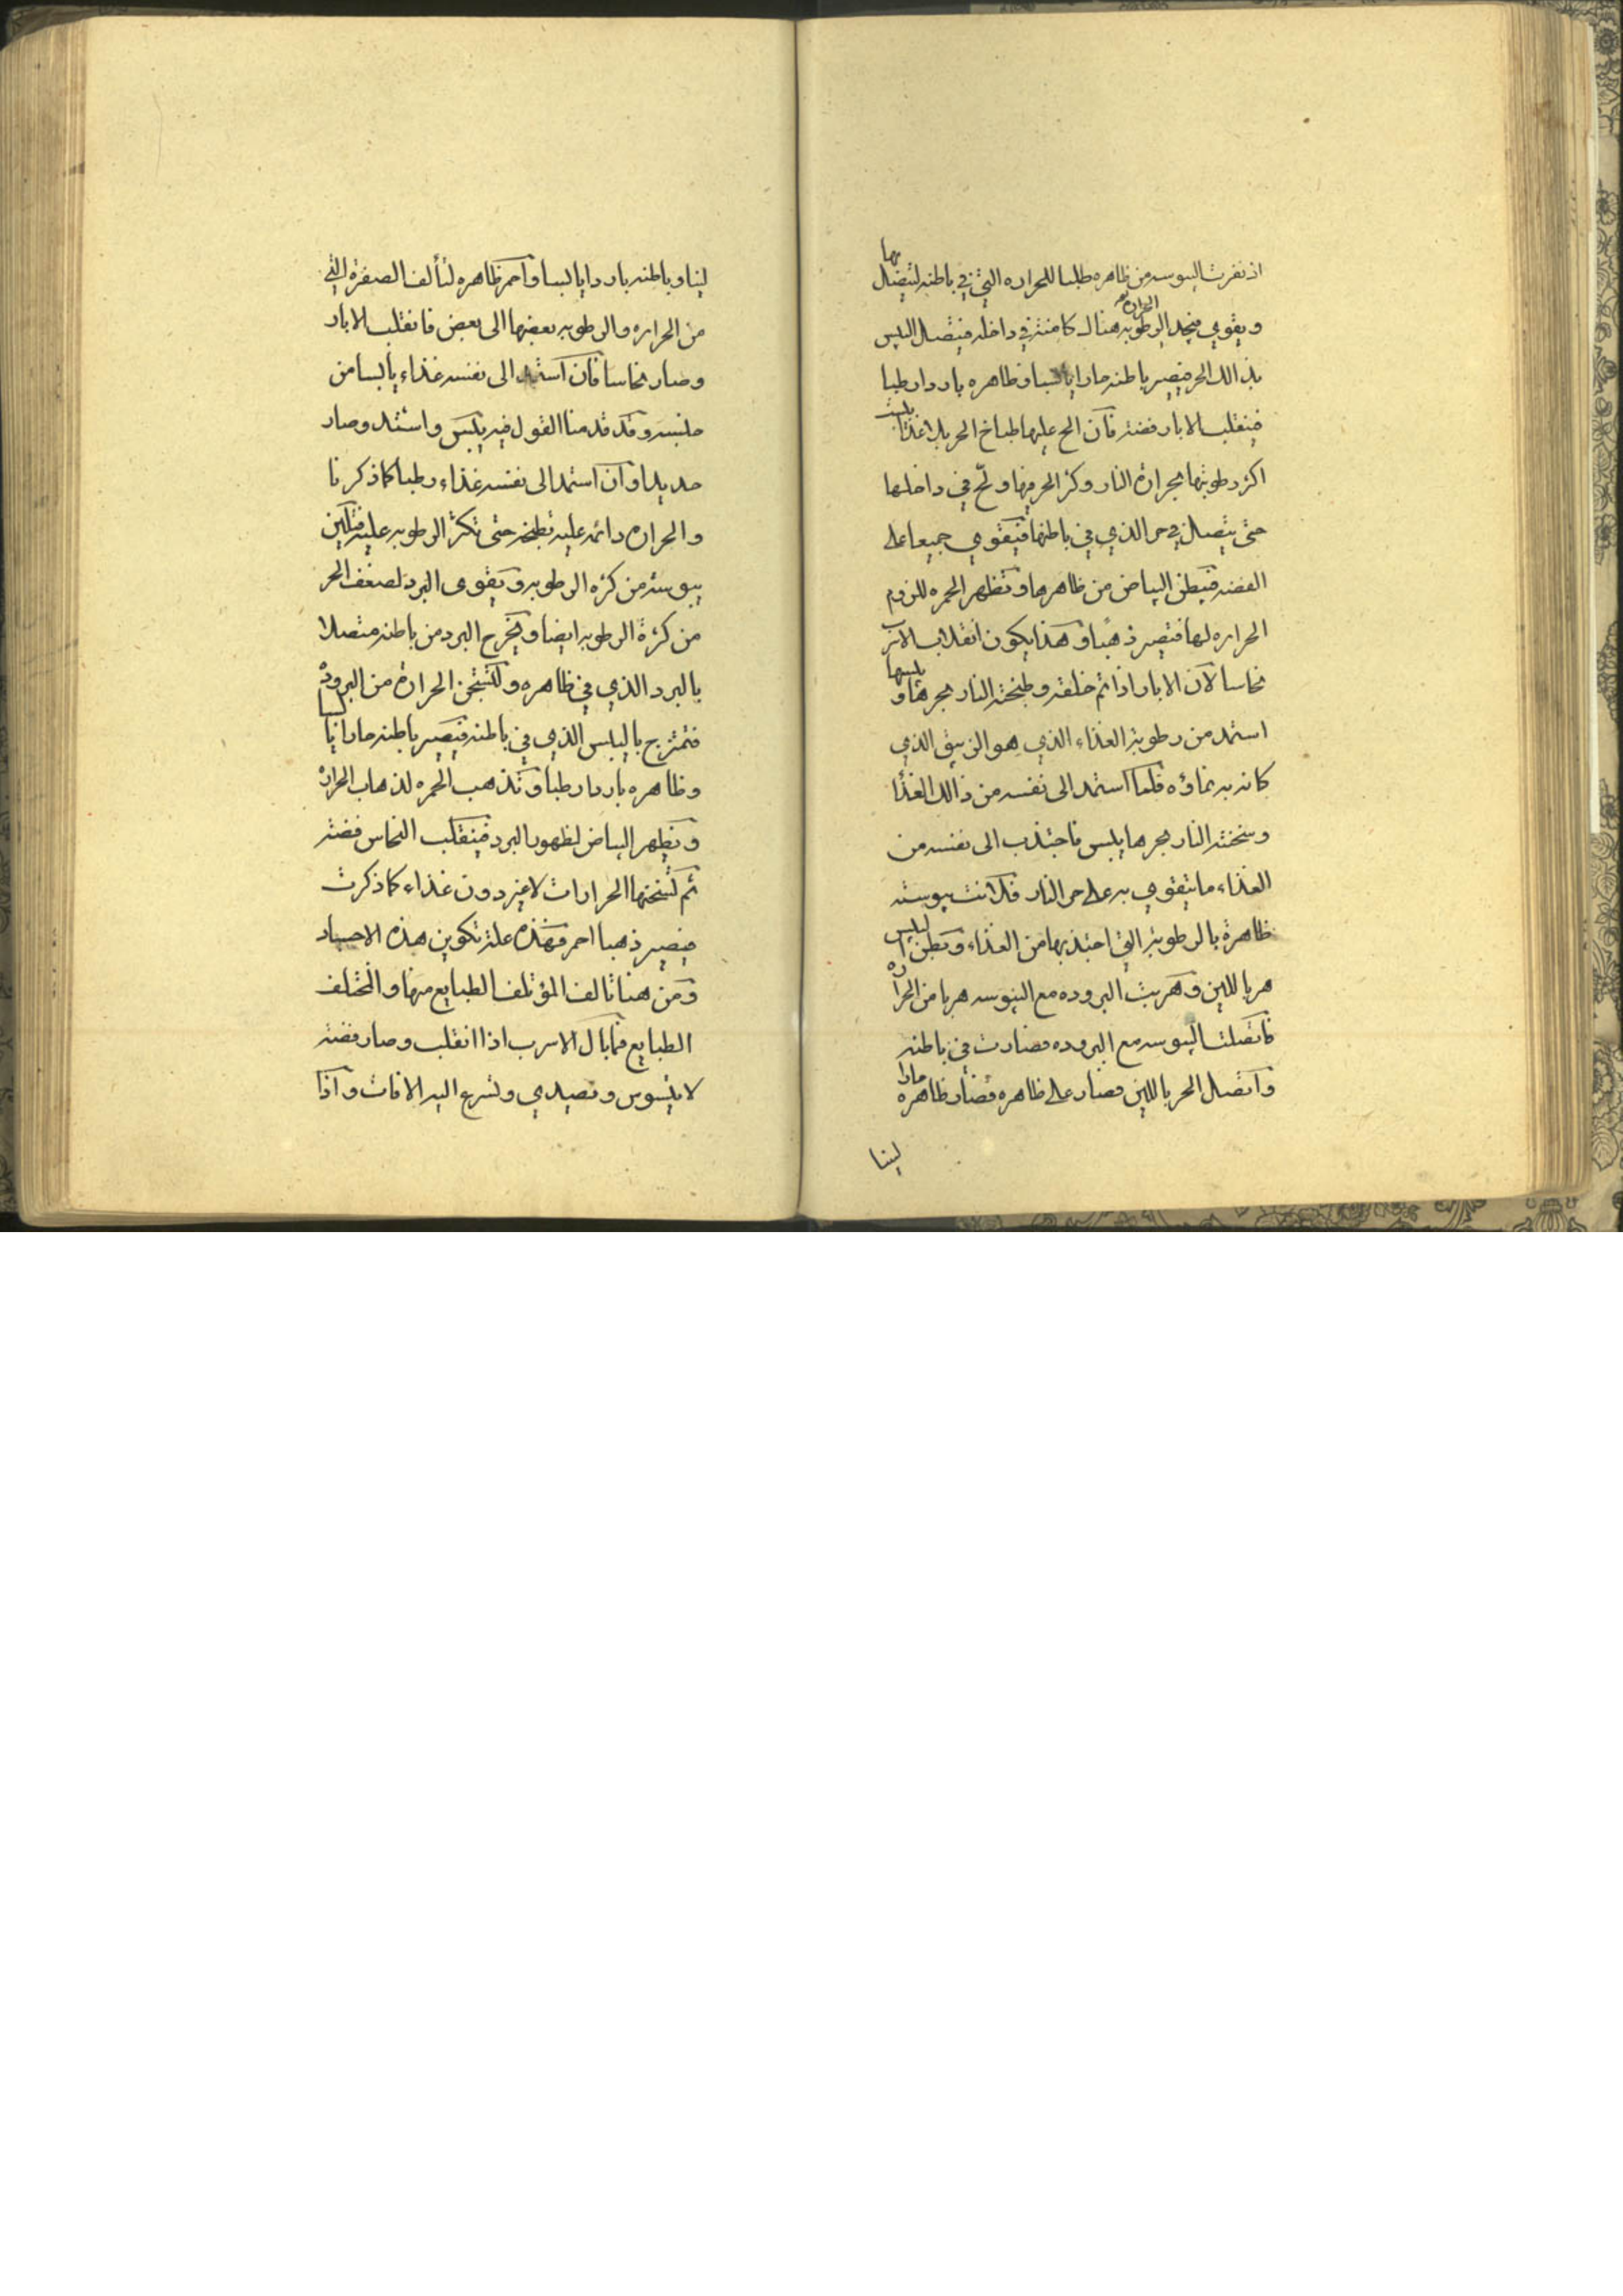 اذ نفرت اليبوسه من ظاهره طلبا للحراره التي في باطنه ليتصل بها
ويقوي فيجد الرطوبه الحراره هنالك كامنة في داخله فيتصل اليبس
بذالك الحر فيصير باطنه حارا يابسا وظاهره باردا رطبا
فينقلب الابار فضة فان الح عليها طباخ الحر بلا غذا يبست
اكثر رطوبتها بحرارة النار وكثر الحر فيها ولح في داخلها
حتى يتصل في حر الذي في باطنها فيقوي جميعا على
الفضه فيبطن البياض من ظاهرها وتظهر الحمره للزوم
الحراره لها فتصير ذهبا وهذا يكون انقلاب الاسرب
نحاسا لان الابار اذا تم خلقه وطبخته النار بحرها و يبسها
استمد من رطوبة الغذاء الذي هو الزيبق الذي
كان به نماؤه فلما استمد الى نفسه من ذالك الغذا
وسخنته النار بحرها يبس فاجتذب الى نفسه من
الغذاء ما يتقوي به على حر النار فلانت يبوسته
ظاهرة بالرطوبة التي اجتذبها من الغذاء وبطن اليبس
هربا للين وهربت البروده مع اليبوسه هربا من الحراره
فاتصلت اليبوسه مع البروده فصارت في باطنه
واتصل الحر باللين فصار على ظاهره فصار ظاهره حارا
لينا
لينا وباطنه باردا يابسا واحمر ظاهره لتألف الصفرة التي
من الحراره والرطوبه بعضها الى بعض فانقلب الابار
وصار نحاسا فان استمد الى نفسه غذاء يابسا من
جنسه وقد قدمنا القول فيه يبس واشتد وصار
حديدا وان استمد الى نفسه غذاء رطبا كما ذكرنا
والحراره دائمه عليه تطبخه حتى تكثر الرطوبه عليه فتلين
يبوسته من كثره الرطوبه ويقوى البرد لضعف الحر
من كثرة الرطوبه ايضا ويخرج البرد من باطنه متصلا
بالبرد الذي في ظاهره ولتستجن الحرارة من البرودة
فتمتزج باليبس الذي في باطنه فيصير باطنه حارا يابسا
وظاهره باردا رطبا وتذهب الحمره لذهاب الحرارة
ويظهر البياض لظهور البرد فينقلب النحاس فضة
ثم تسخنها الحرارات لا غير دون غذاء كما ذكرت
فيصير ذهبا احمر فهذه علة تكوين هذه الاجساد
ومن هنا تالف المؤتلف الطبايع منها والمختلف
الطبايع فما بال الاسرب اذا انقلب وصار فضة
لا يسوس و تصيدي وتسرع اليه الافات واذا